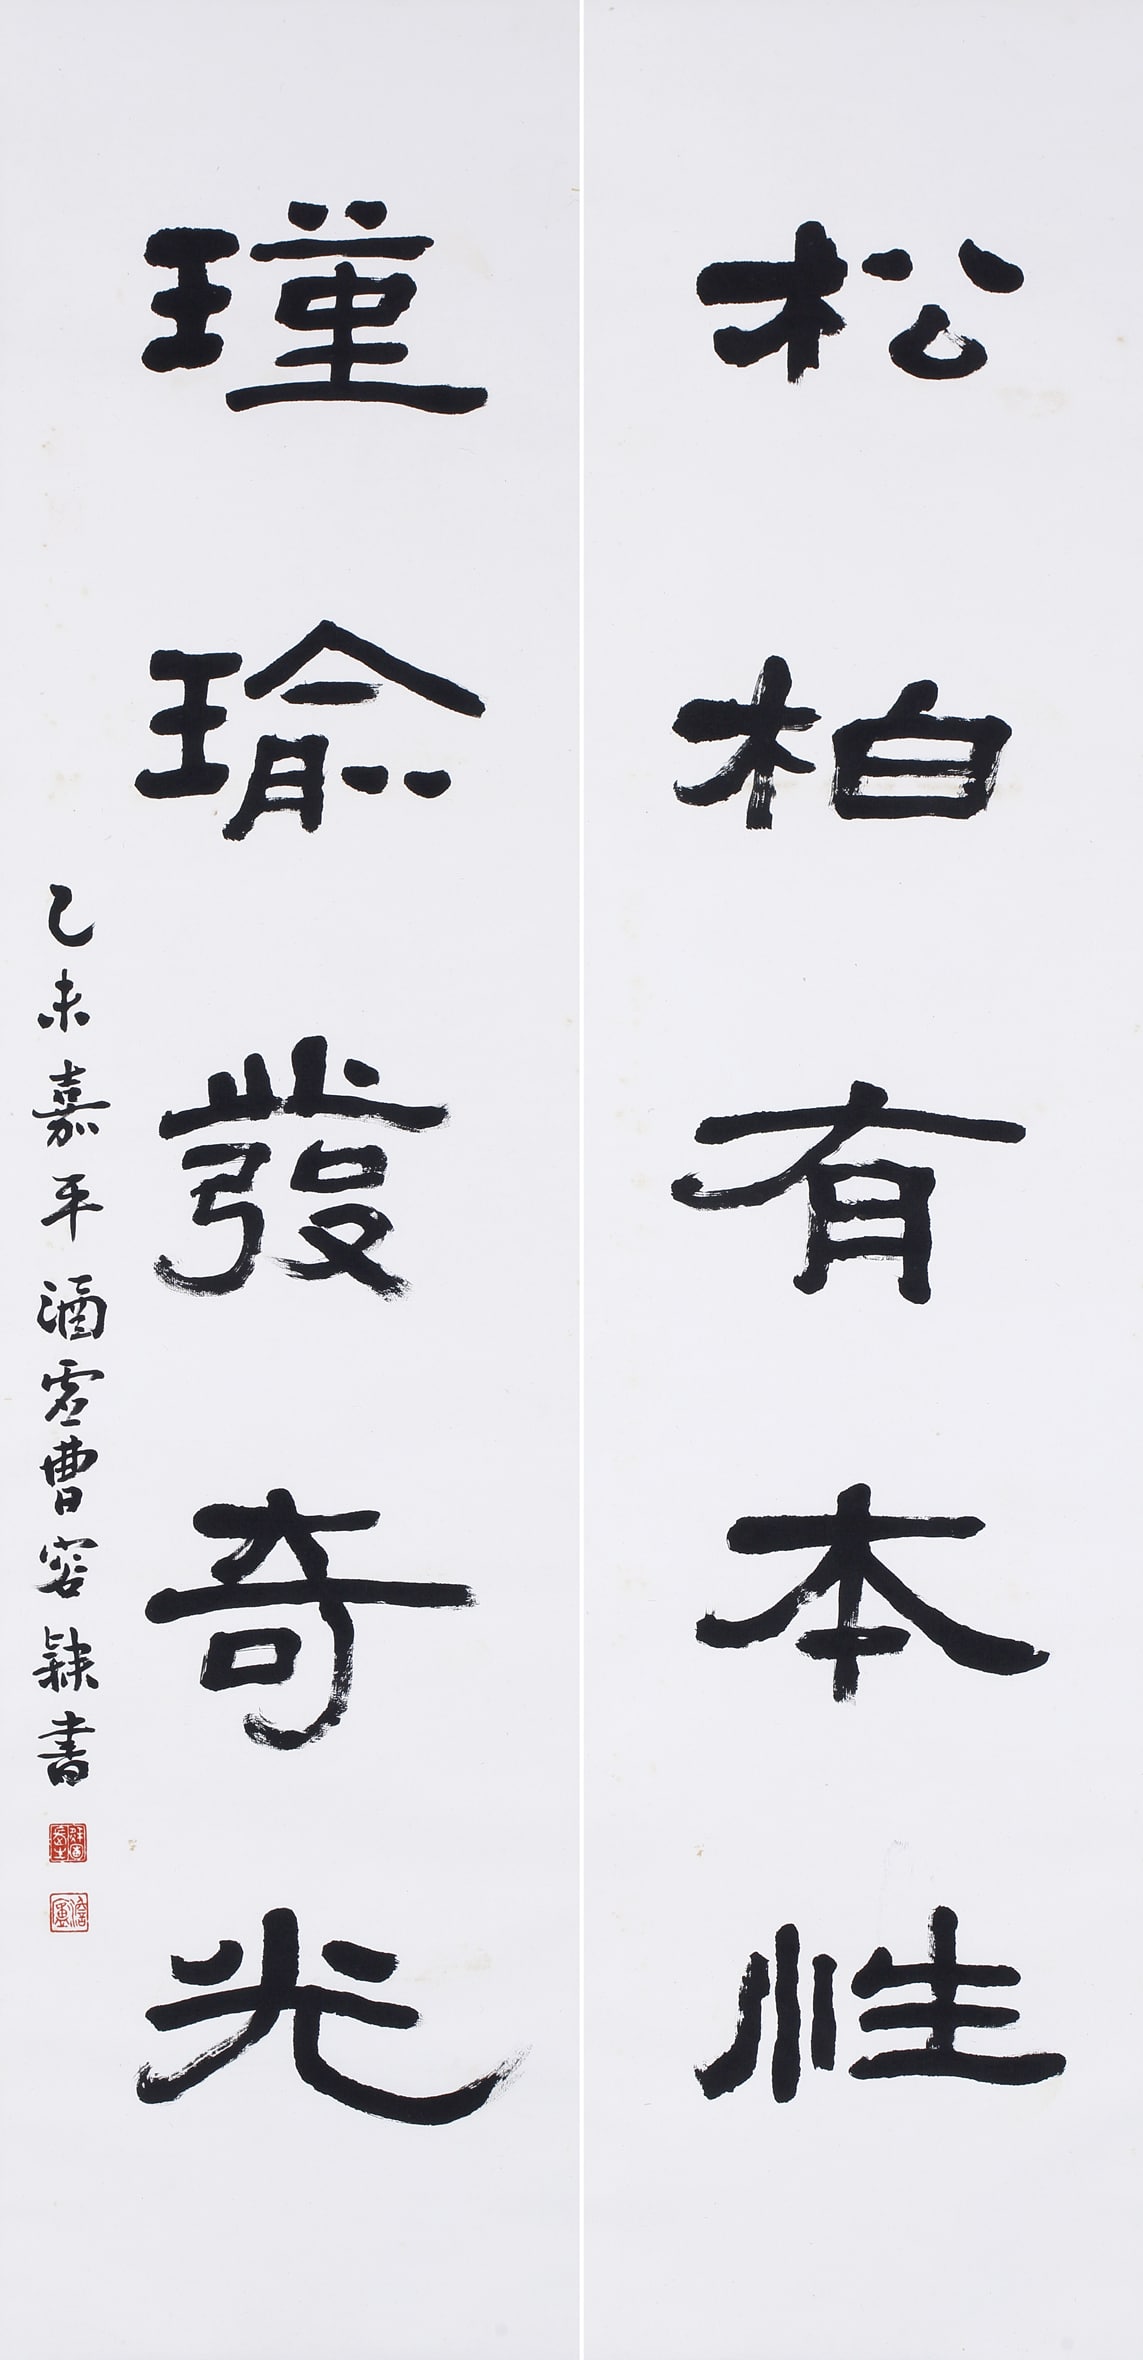 松柏有本性
瑾瑜發奇光
乙未嘉平酒虛曹容隸書